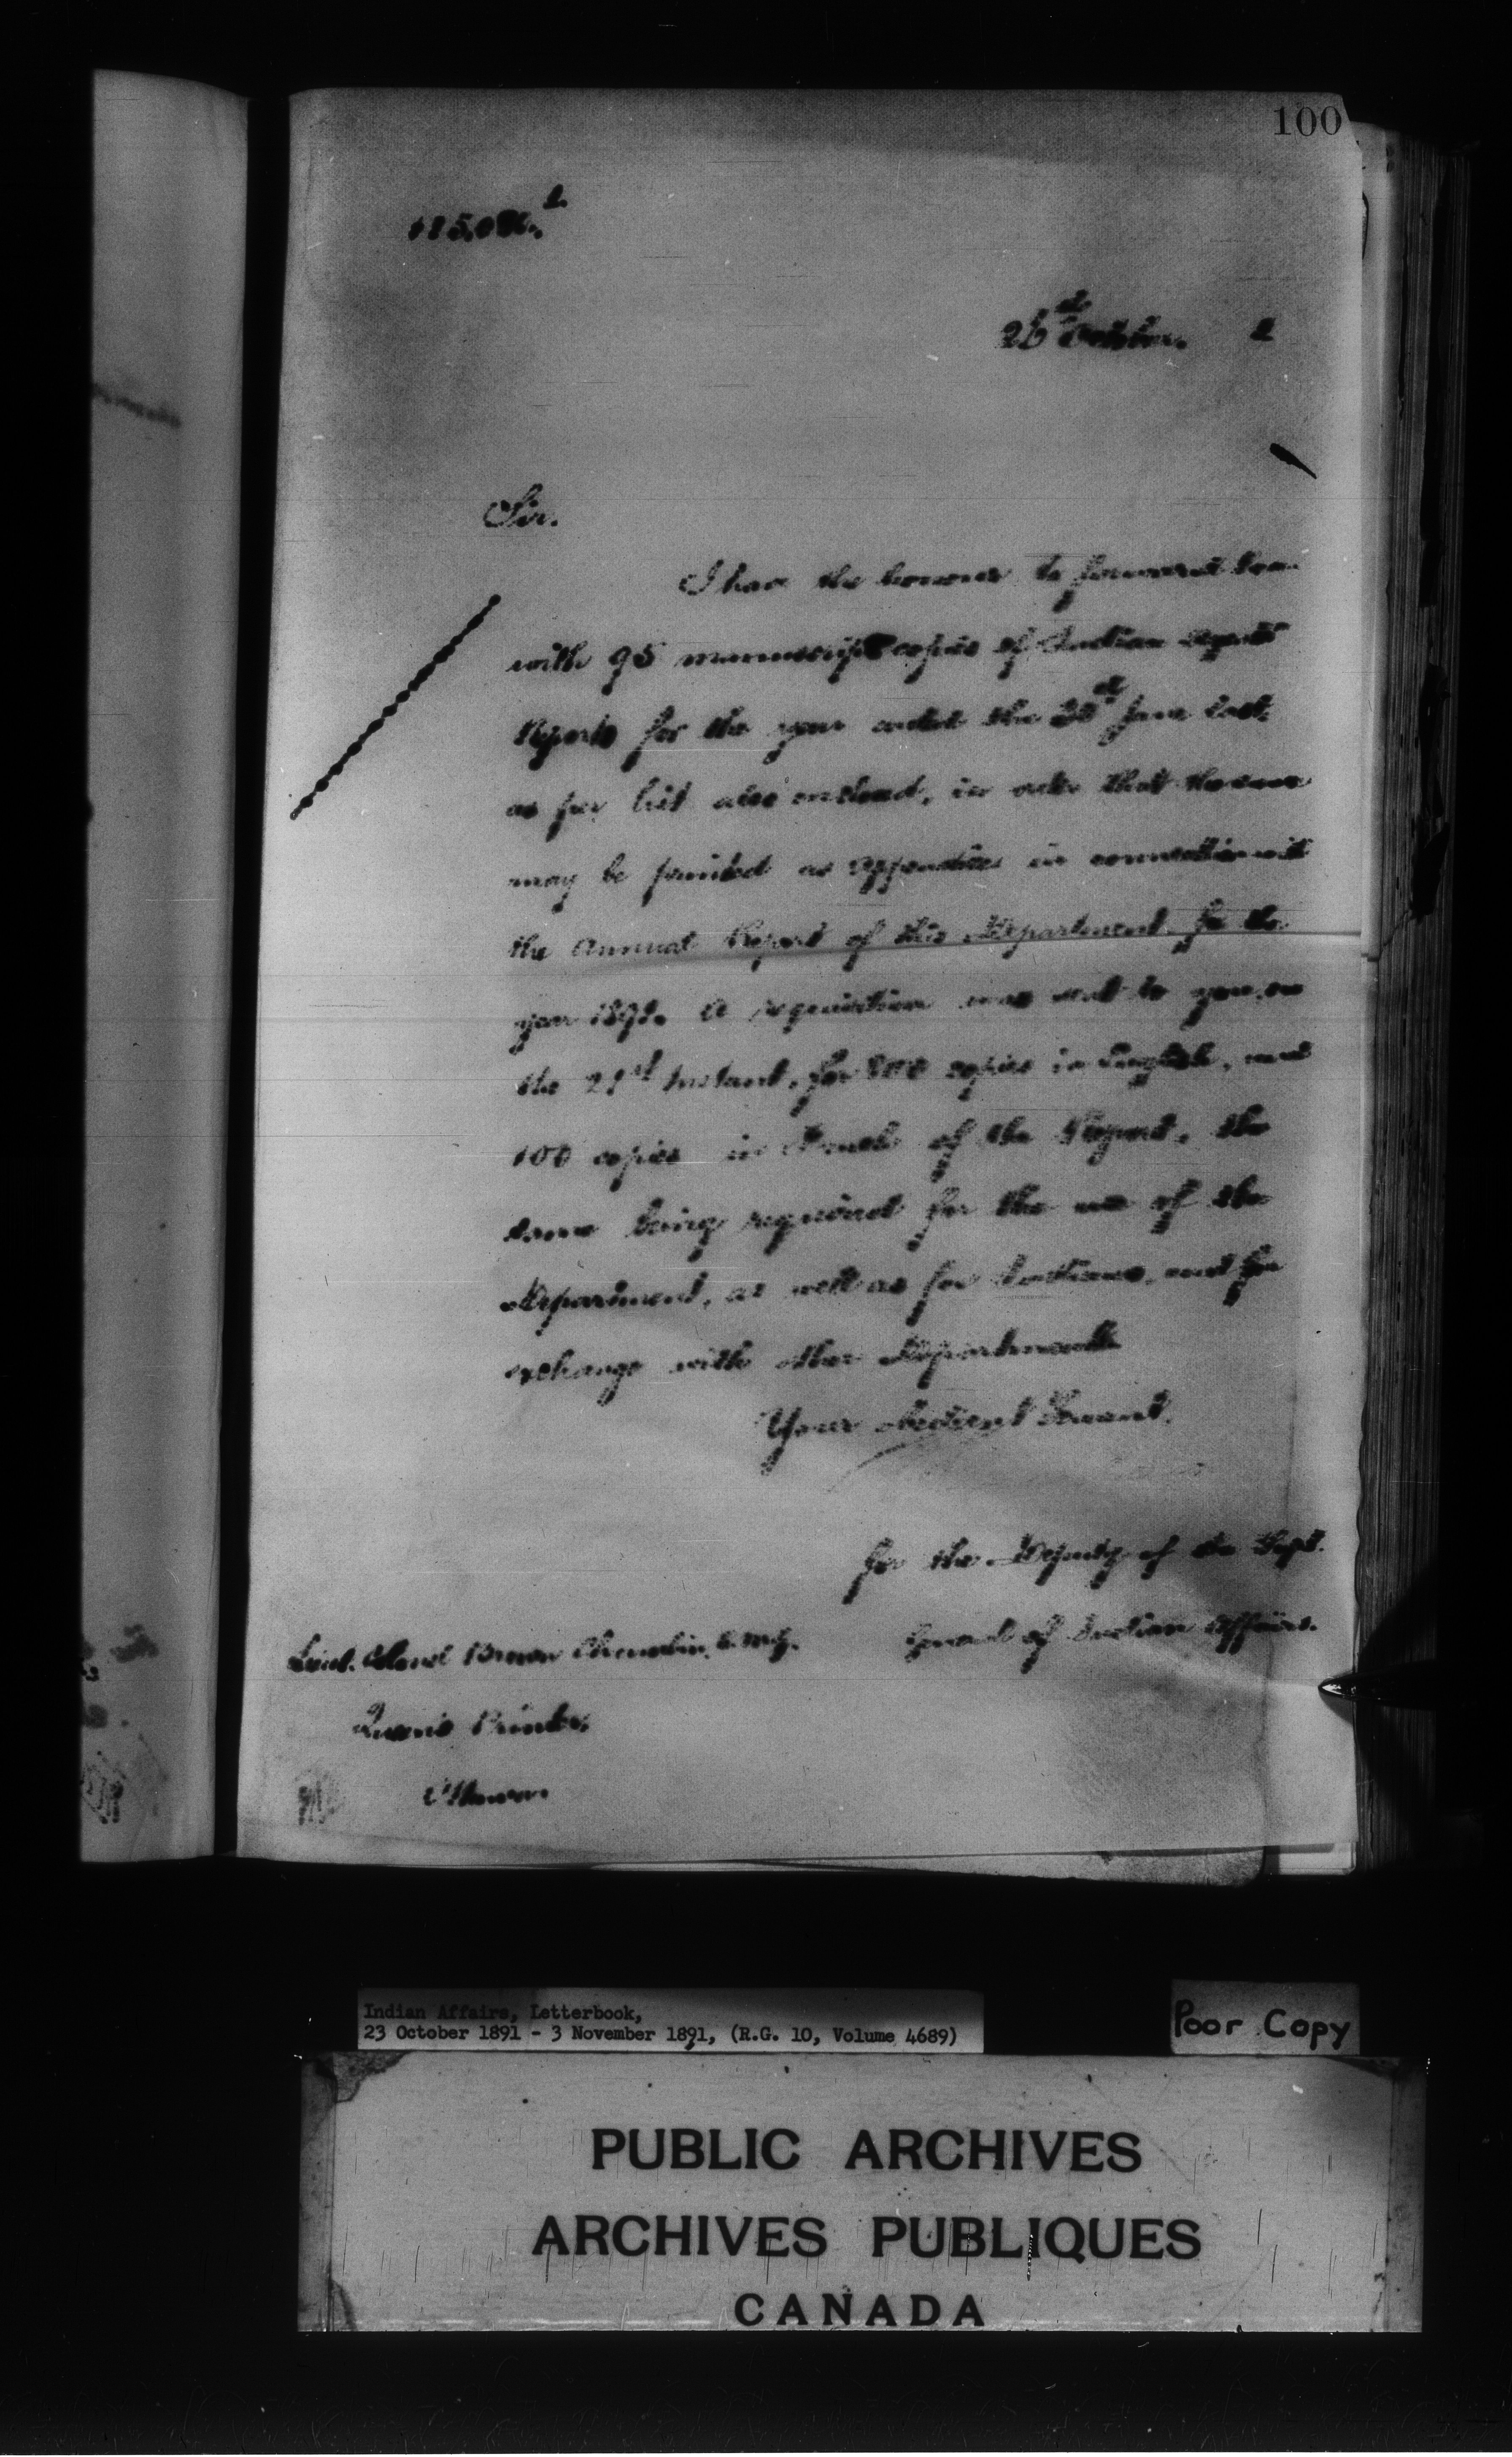 100
26th October. 1
Sir.
I have the honour to forward here-
with 95 manuscript copies of Indian Agents
Reports for the year ended the 30th June last,
as per list also enclosed, in order that the same
may be printed as appendices in connection with
the Annual Report of this Department for the
year 1891. A requisition was sent to you, on
the 21st Instant, for 800 copies in English, and
100 copies in French of the Report, the
same being required for the use of the
Department, as well as for Indians, and for
exchange with other Departments
Your obedient Servant.
for the Deputy of the Supt.
General of Indian Affairs.
Lieut. Colonel Brown Chamberlin, C.M.G.
Queen's Printer,
Ottawa.
Indian Affairs, Letterbook,
23 October 1891 - 3 November 1891, (R.G. 10, Volume 4689)
Poor Copy
PUBLIC ARCHIVES
ARCHIVES PUBLIQUES
CANADA